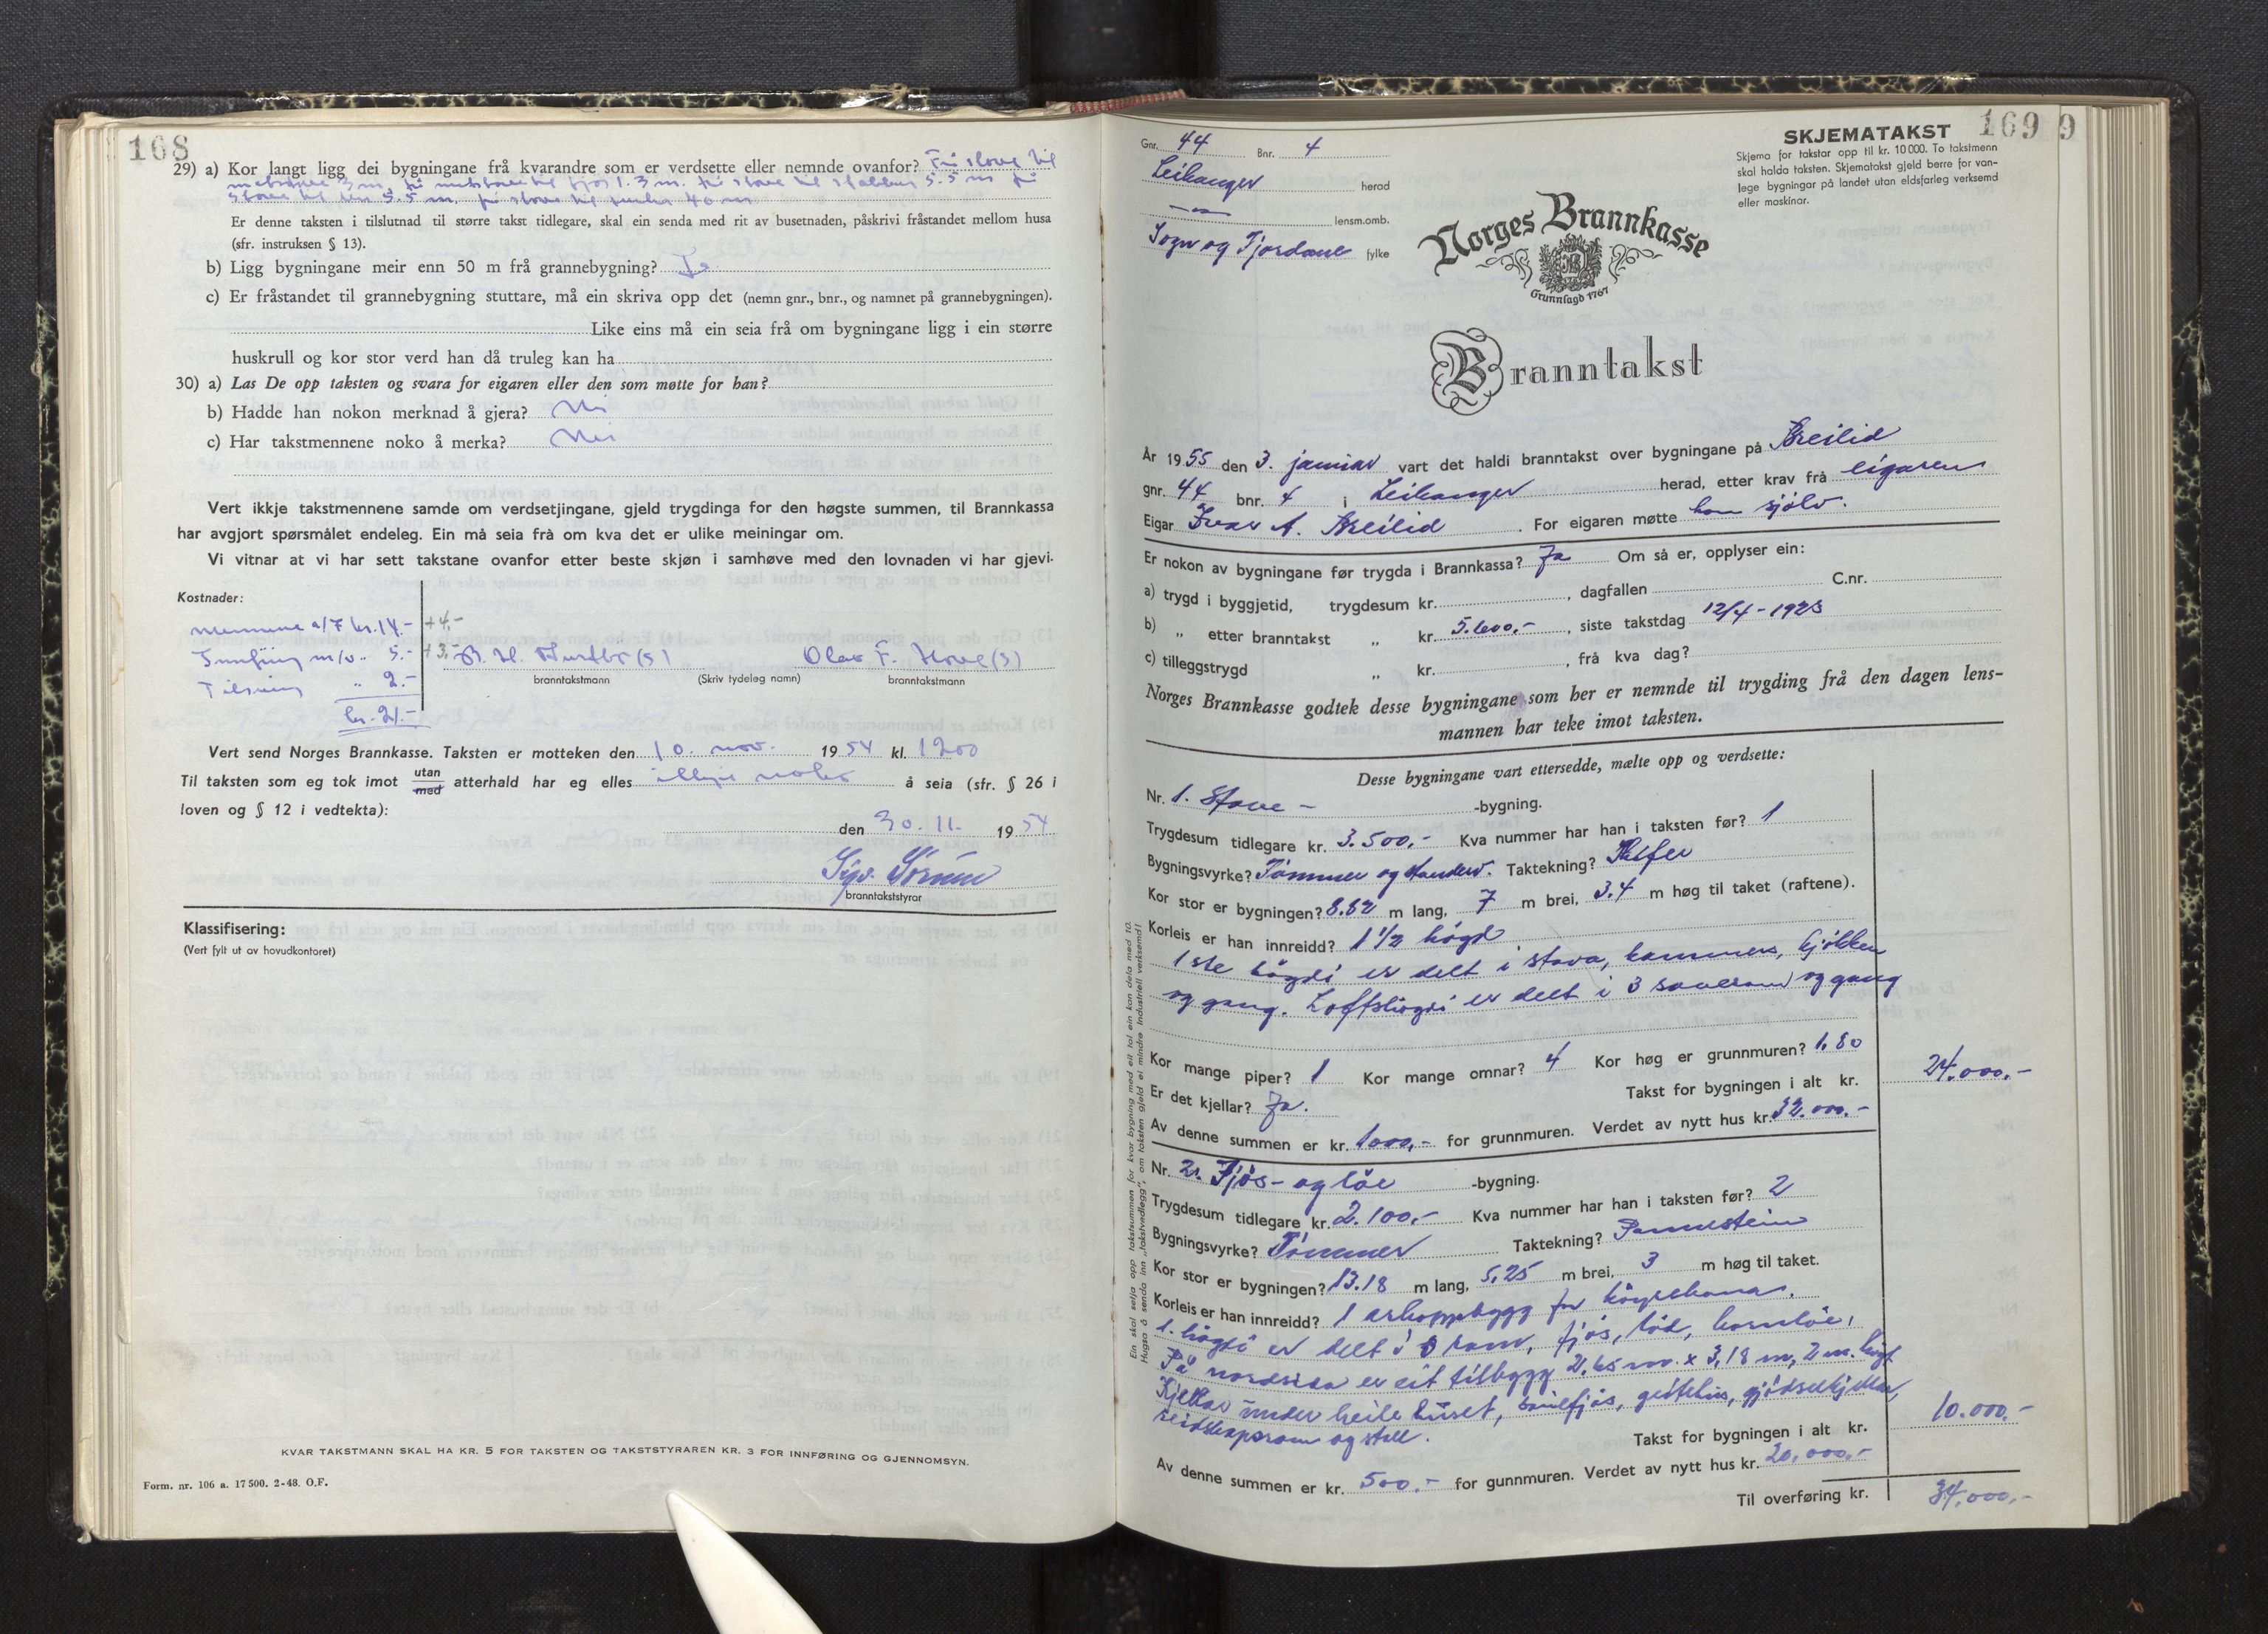 168
29) a) Kor langt ligg dei bygningane frå kvarandre som er verdsette eller nemnde ovanfor? Frå stove til
3 m, frå til fjos 1.3 m. frå stove til stabbur 5.5 m frå
stove til 5.5 m. frå stove til 40 m
Er denne taksten i tilslutnad til større takst tidlegare, skal ein senda med rit av busetnaden, påskrivi fråstandet mellom husa
(sfr. instruksen § 13).
b) Ligg bygningane meir enn 50 m frå grannebygning? Ja
c) Er fråstandet til grannebygning stuttare, må ein skriva opp det (nemn gnr., bnr., og namnet på grannebygningen).
Like eins må ein seia frå om bygningane ligg i ein større
huskrull og kor stor verd han då truleg kan ha
30) a) Las De opp taksten og svara for eigaren eller den som møtte for han?
b) Hadde han nokon merknad å gjera? Nei
c) Har takstmennene noko å merka? Nei
Vert ikkje takstmennene samde om verdsetjingane, gjeld trygdinga for den høgste summen, til Brannkassa
har avgjort spørsmålet endeleg. Ein må seia frå om kva det er ulike meiningar om.
Vi vitnar at vi har sett takstane ovanfor etter beste skjøn i samhøve med den lovnaden vi har gjevi.
Kostnader:
Mennene a/7 kr. 14.- +4.-
Innføring m/v. 5.- +3.-
2.-
kr. 21.-
Olav F. Hove (s)
branntakstmann (Skriv tydeleg namn) branntakstmann
Vert send Norges Brannkasse. Taksten er motteken den 10. nov. 1954 kl. 1200
Til taksten som eg tok imot utan/med atterhald har eg elles ikkje noko å seia (sfr. § 26 i
loven og § 12 i vedtekta):
den 30. 11. 1954
branntakststyrar
Klassifisering:
(Vert fylt ut av hovudkontoret)
KVAR TAKSTMANN SKAL HA KR. 5 FOR TAKSTEN OG TAKSTSTYRAREN KR. 3 FOR INNFØRING OG GJENNOMSYN.
Form. nr. 106 a. 17500. 2-48. O.F.
169 9
SKJEMATAKST
Skjema for takstar opp til kr. 10000. To takstmenn
skal halda taksten. Skjematakst gjeld berre for van-
lege bygningar på landet utan eldsfarleg verksemd
eller maskinar.
Gnr. 44 Bnr. 4
Leikanger herad
lensm.omb.
Sogn og Fjordane fylke
Norges Brannkasse
Grunnlagd 1767
Branntakst
År 1955 den 3. januar vart det haldi branntakst over bygningane på Breilid
gnr. 44 bnr. 4 i Leikanger herad, etter krav frå eigaren
Eigar Ivar A. Breilid. For eigaren møtte han sjølv.
Er nokon av bygningane før trygda i Brannkassa? Ja Om så er, opplyser ein:
a) trygd i byggjetid, trygdesum kr. , dagfallen C.nr.
b) „ etter branntakst „ kr. 5.600.- , siste takstdag 12/4-1923
c) tilleggstrygd „ kr. , frå kva dag?
Norges Brannkasse godtek desse bygningane som her er nemnde til trygding frå den dagen lens-
mannen har teke imot taksten.
Desse bygningane vart ettersedde, mælte opp og verdsette:
Nr. 1. Stove - -bygning.
Trygdesum tidlegare kr. 3.500,- Kva nummer har han i taksten før? 1
Bygningsvyrke? Tømmer og Taktekning? Skifer
Kor stor er bygningen? 8.82 m lang, 7 m brei, 3.4 m høg til taket (raftene).
Korleis er han innreidd? 1 1/2 høgd
1ste høgdi er delt i stova, kammers, kjøkken
og gang. Loftshøgdi er delt i 3 soverom og gang
Kor mange piper? 1 Kor mange omnar? 4 Kor høg er grunnmuren? 1.80
Er det kjellar? Ja. Takst for bygningen i alt kr. 24.000.-
Av denne summen er kr. 1000,- for grunnmuren. Verdet av nytt hus kr. 32.000.-
Nr. 2. Fjøs- og løe -bygning.
Trygdesum tidlegare kr. 2.100.- Kva nummer har han i taksten før? 2
Bygningsvyrke? Tømmer Taktekning? Pannestein
Kor stor er bygningen? 13.18 m lang, 5,25 m brei, 3 m høg til taket.
Korleis er han innreidd? 1 arkoppbygg for høyrebana.
1. høgdi er delt i 3 rom, fjøs, lød, kornløe,
På nordsida er eit tilbygg 2.65 m. x 3,18 m, 2 m. høgt
Kjellar under heile huset, sauefjøs, geitehus, gjødselkjellar,
reidskapsrom og stall.
Takst for bygningen i alt kr. 10.000.-
Av denne summen er kr. 500.- for gunnmuren. Verdet av nytt hus kr. 20.000,-
Til overføring kr. 34.000,-
Ein skal setja opp takstsummen for kvar bygning med eit tal ein kan dela med 10.
Hugsa å senda inn „takstvedlegg", om taksten gjeld ei mindre industriell verksemd!